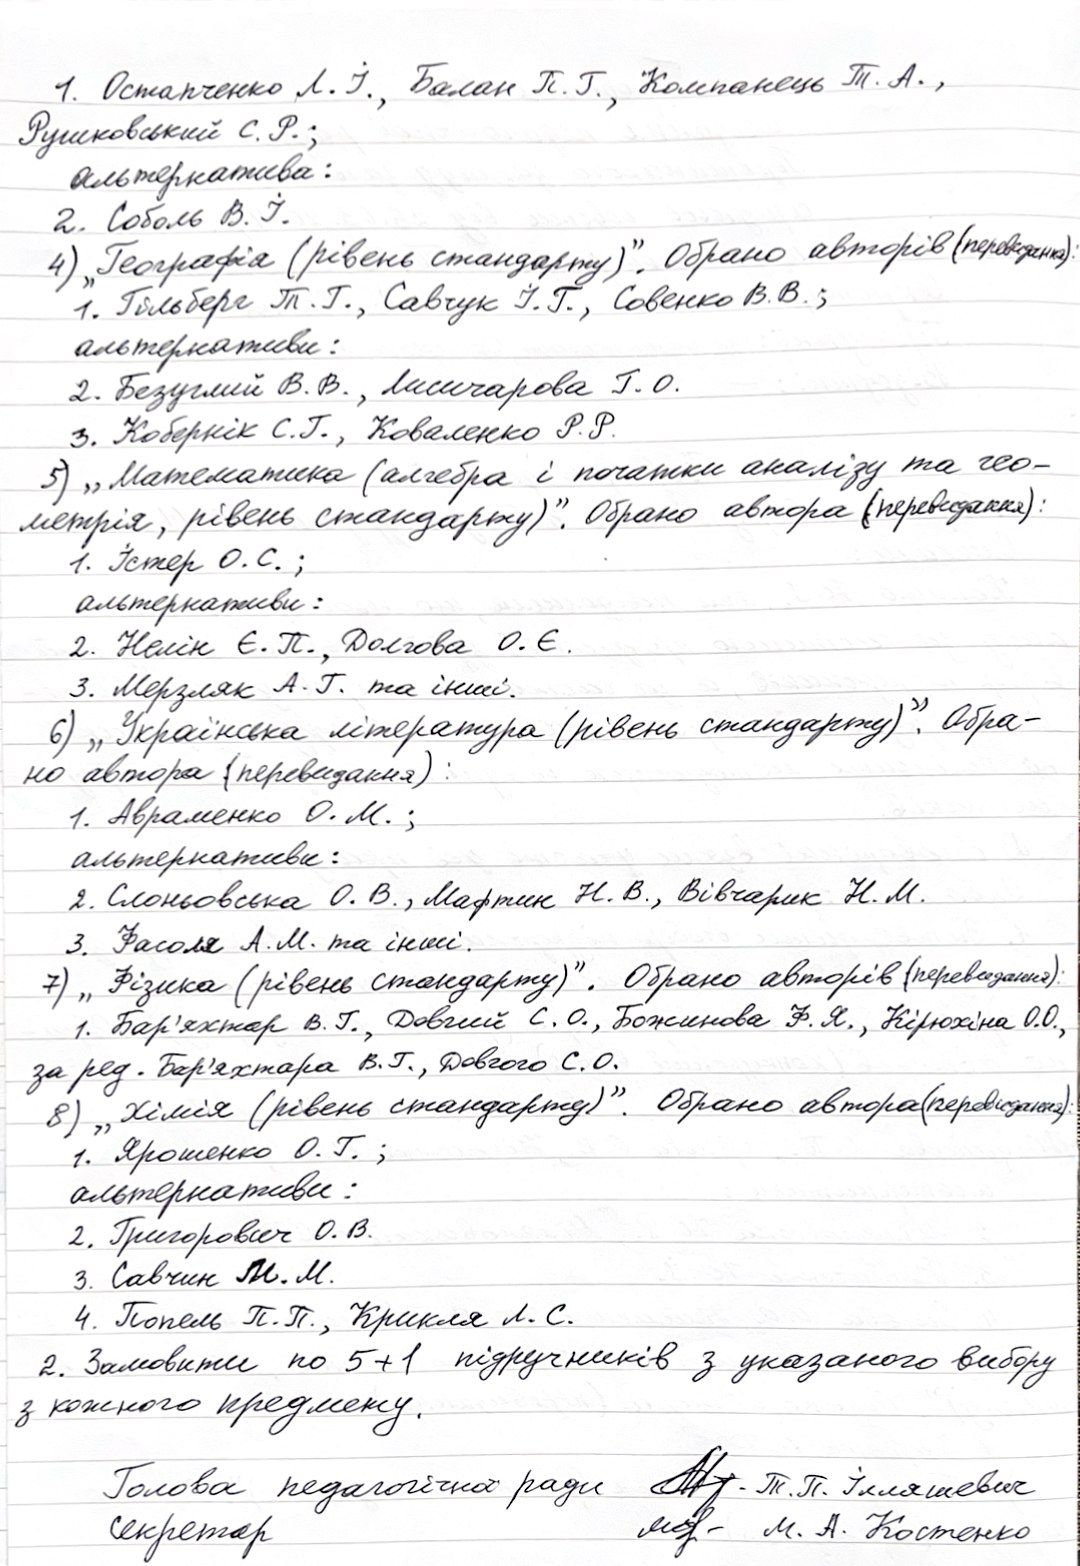 1. Остапченко Л. І., Балан П. Г., Компанець Т. А.,
Рушковський С. Р.;
альтернатива:
2. Соболь В. І.
4) „Географія (рівень стандарту)”. Обрано авторів (перевидання):
1. Гільберг Т. Г., Савчук І. Г., Совенко В. В.;
альтернативи:
2. Безуглий В. В., Лисичарова Г. О.
3. Кобернік С. Г., Коваленко Р. Р.
5) „Математика (алгебра і початки аналізу та гео-
метрія, рівень стандарту)”. Обрано автора (перевидання):
1. Істер О. С.;
альтернативи:
2. Нелін Є. П., Долгова О. Є.
3. Мерзляк А. Г. та інші.
6) „Українська література (рівень стандарту)”. Обра-
но автора (перевидання):
1. Авраменко О. М.;
альтернативи:
2. Слоньовська О. В., Мафтин Н. В., Вівчарик Н. М.
3. Фасоля А. М. та інші.
7) „Фізика (рівень стандарту)”. Обрано авторів (перевидання):
1. Бар'яхтар В. Г., Довгий С. О., Божинова Ф. Я., Кірюхіна О.О.,
за ред. Бар'яхтара В. Г., Довгого С. О.
8) „Хімія (рівень стандарту)”. Обрано автора (перевидання):
1. Ярошенко О. Г.;
альтернативи:
2. Григорович О. В.
3. Савчин М. М.
4. Попель П. П., Крикля Л. С.
2. Замовити по 5+1 підручників з указаного вибору
з кожного предмету.
Голова педагогічної ради Т. П. Ілляшевич
секретар М. А. Костенко